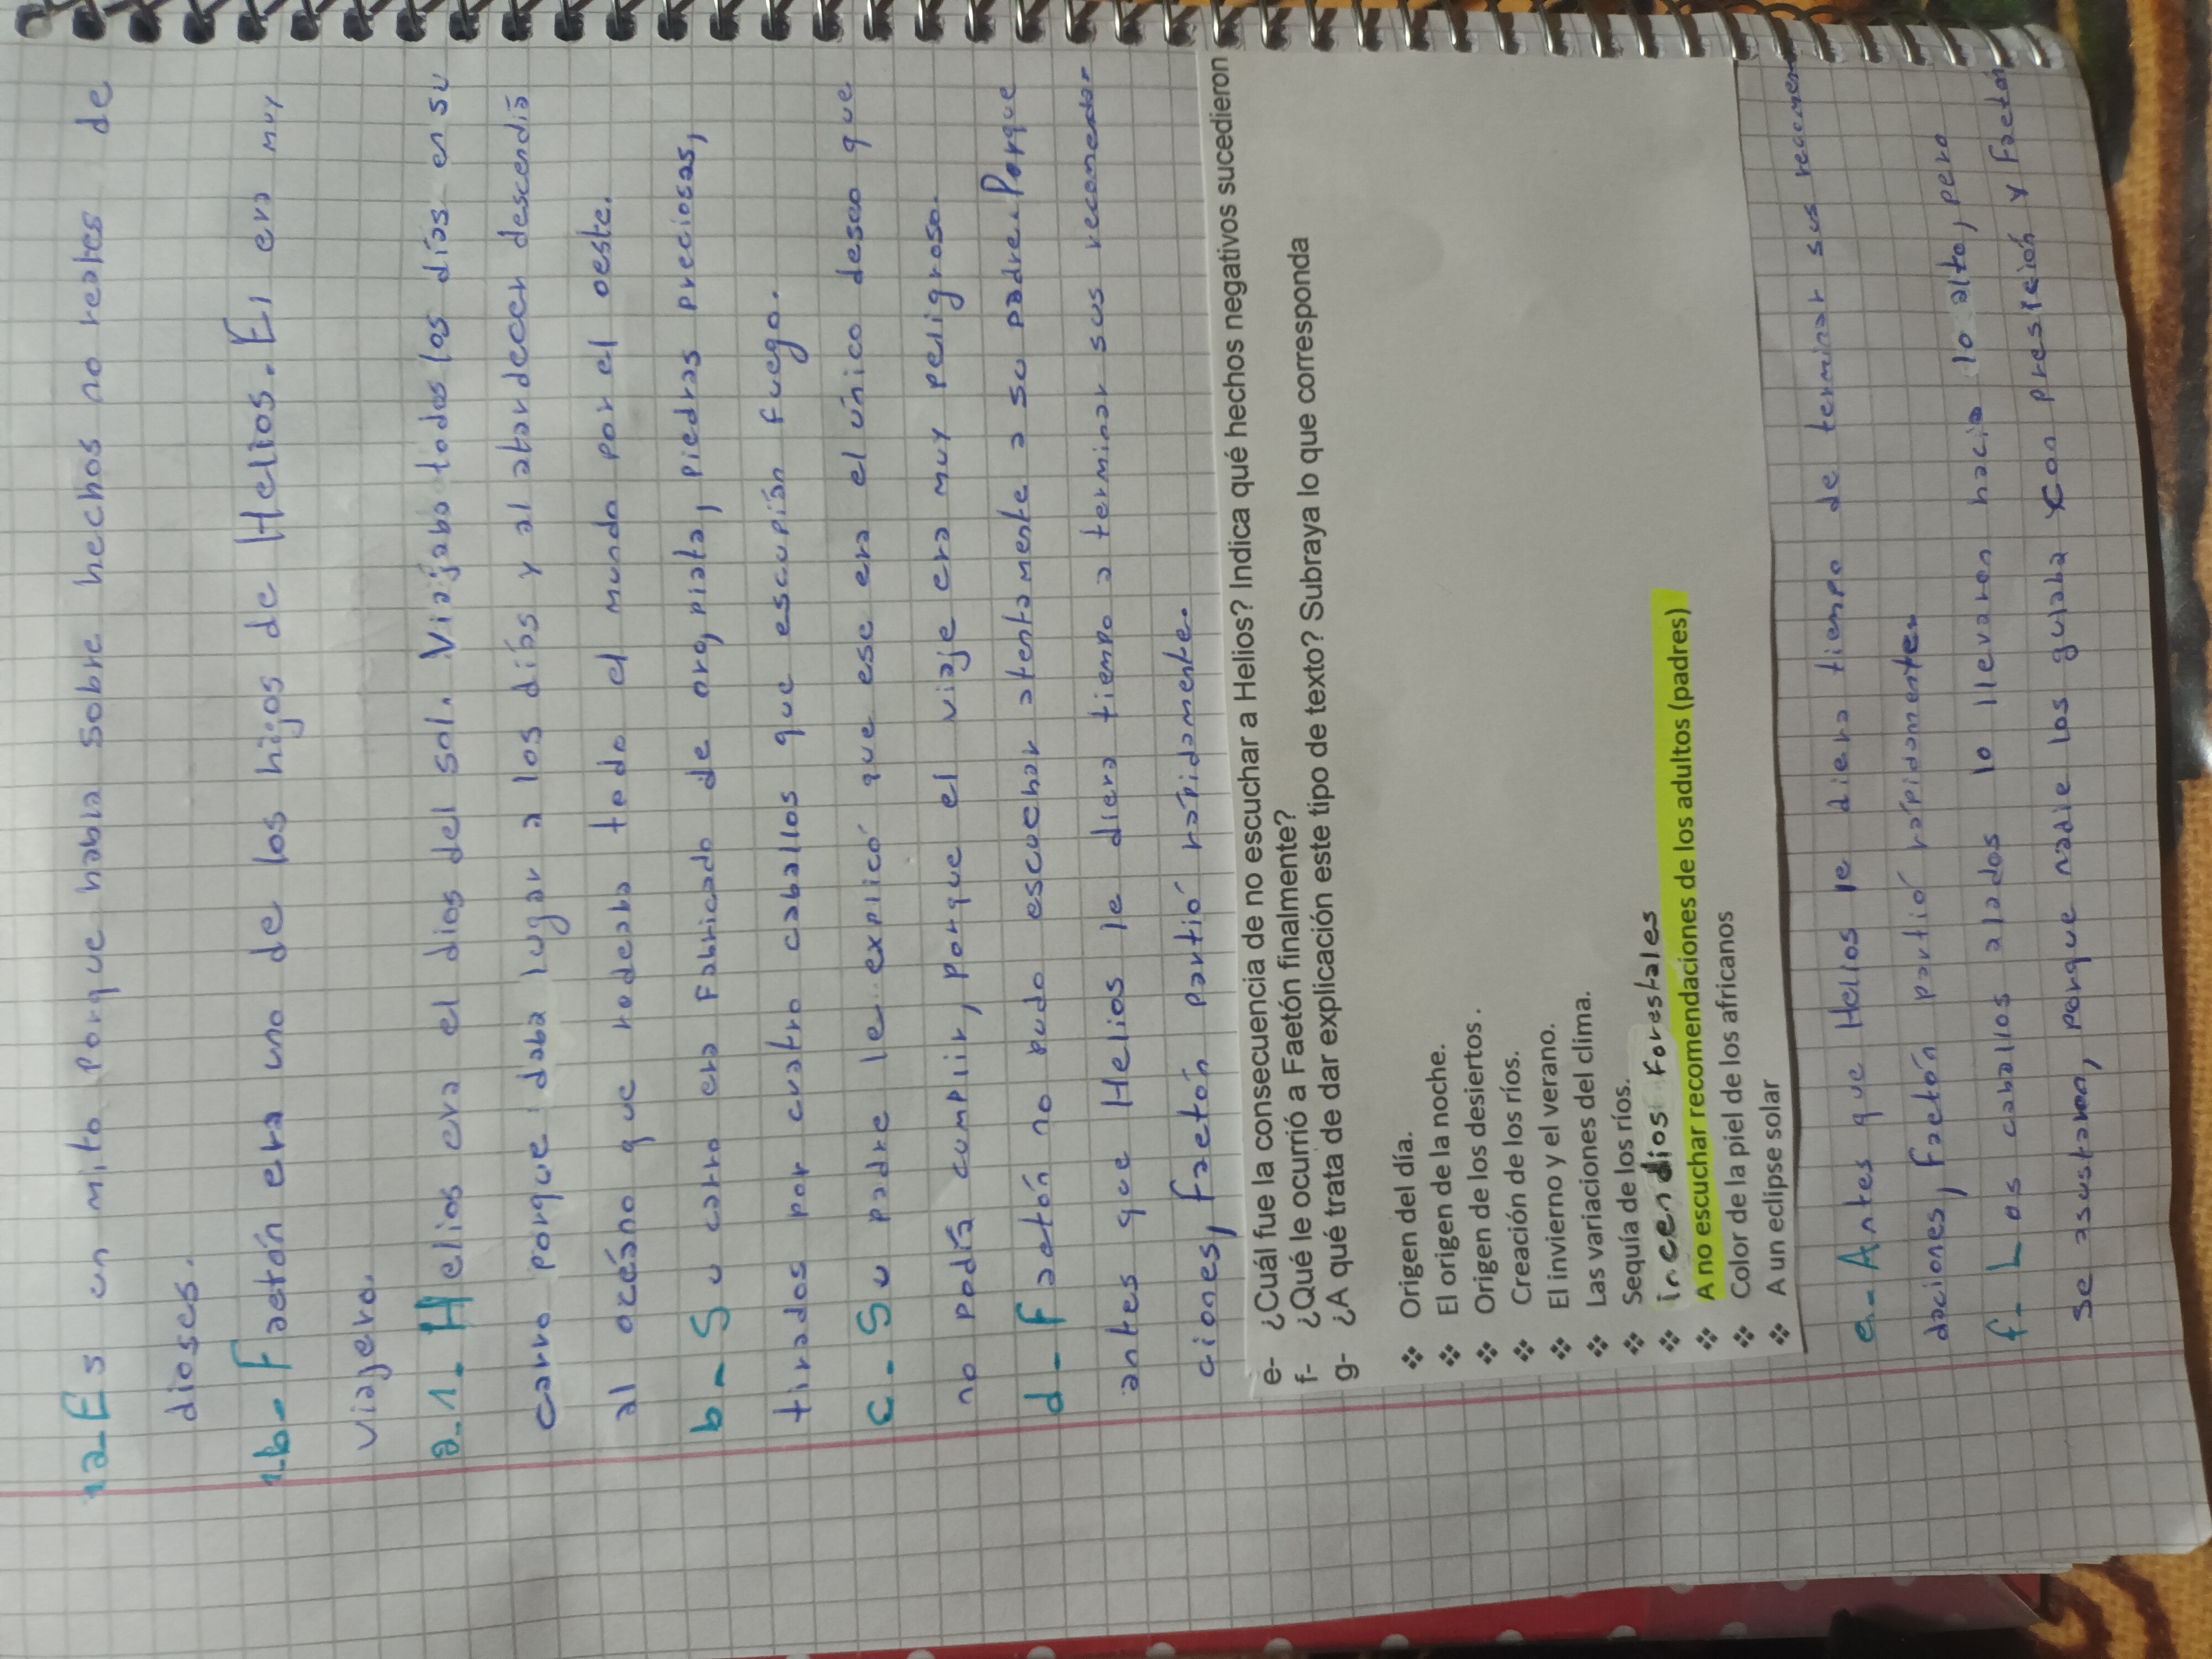 1a-Es un mito porque habla sobre hechos no reales de
dioses.
1.b- Faetón era uno de los hijos de Helios. El era muy
viajero.
a-1- Helios era el dios del sol. Viajaba todos los días en su
carro porque daba lugar a los días y al atardecer descendía
al océano que rodeaba todo el mundo por el oeste.
b- Su carro era Fabricado de oro, plata, piedras preciosas,
tirados por cuatro caballos que escupían fuego.
c- Su padre le explicó que ese era el único deseo que
no podía cumplir, porque el viaje era muy peligroso.
d- Faetón no pudo escuchar atentamente a su padre. Porque
antes que Helios le diera tiempo a terminar sus recomenda-
ciones, Faetón partió rápidamente.
e- ¿Cuál fue la consecuencia de no escuchar a Helios? Indica qué hechos negativos sucedieron
f- ¿Qué le ocurrió a Faetón finalmente?
g- ¿A qué trata de dar explicación este tipo de texto? Subraya lo que corresponda
❖ Origen del día.
❖ El origen de la noche.
❖ Origen de los desiertos .
❖ Creación de los ríos.
❖ El invierno y el verano.
❖ Las variaciones del clima.
❖ Sequía de los ríos.
❖ incendios forestales
❖ A no escuchar recomendaciones de los adultos (padres)
❖ Color de la piel de los africanos
❖ A un eclipse solar
e- Antes que Helios le diera tiempo de terminar sus recomen
daciones, Faetón partió rápidamente.
f- Los caballos alados lo llevaron hacia lo alto, pero
se asustaron, porque nadie los guiaba con presición y Faetón